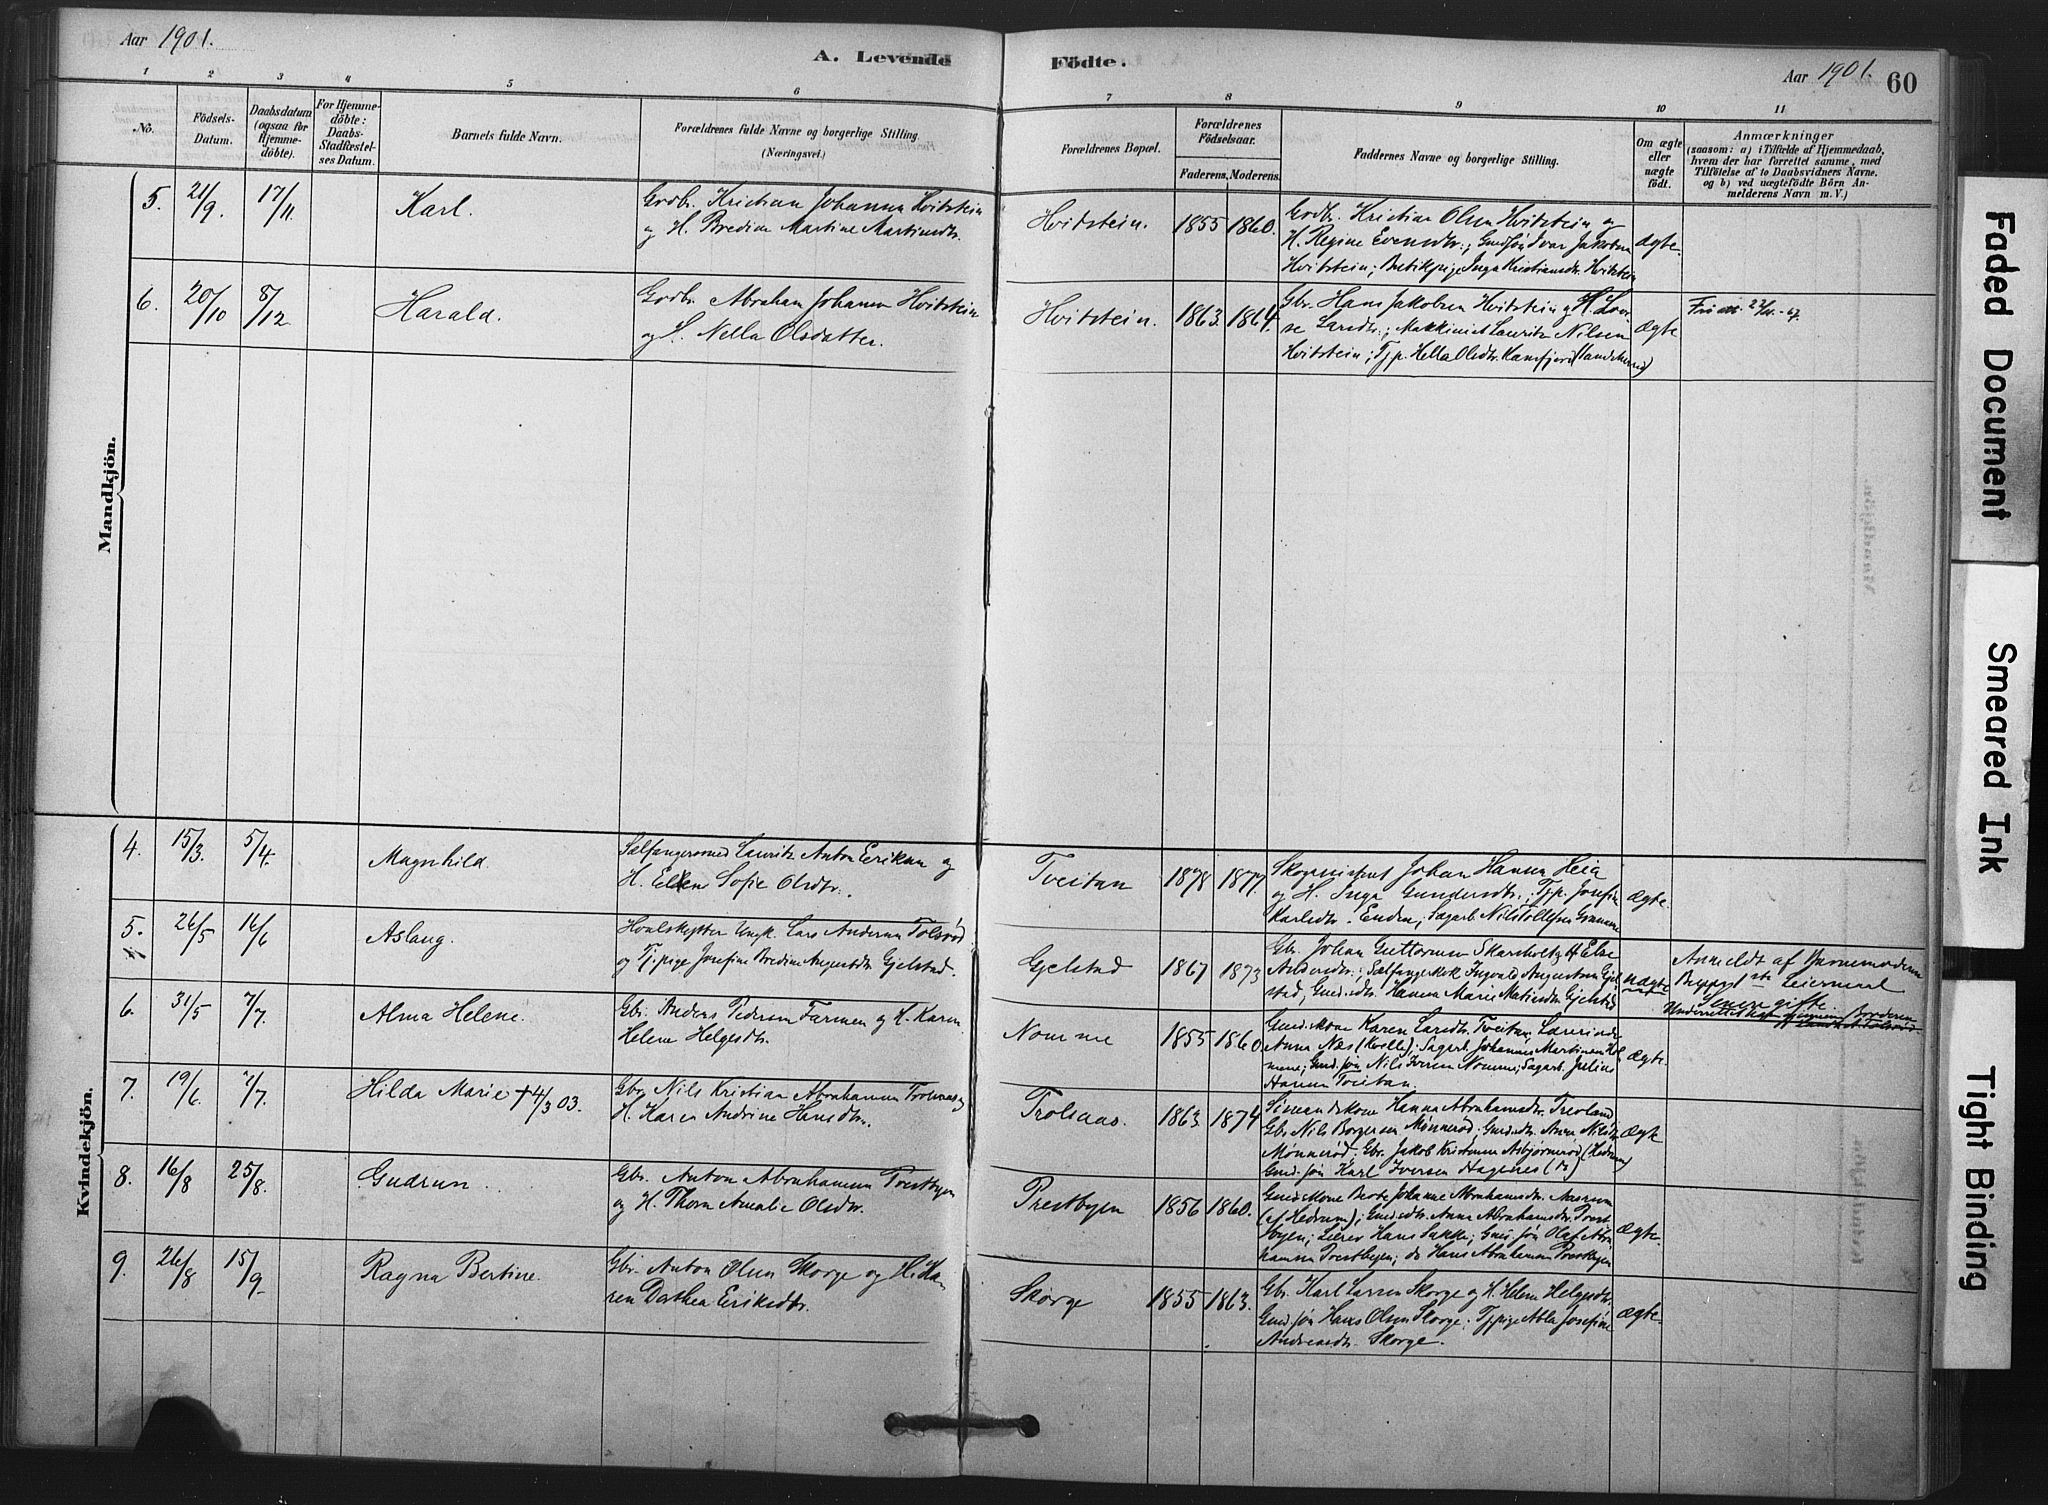 Aar 1901.
A. Levende Födte.
Aar 1901. 60
1 2 3 4 5 6 7 8 9 10 11
No.
Födsels-
Datum.
Daabsdatum
(ogsaa for
Hjemme-
döbte).
For Hjemme-
döbte:
Daabs-
Stadfæstel-
ses Datum.
Barnets fulde Navn.
Forældrenes fulde Navne og borgerlige Stilling.
(Næringsvei.)
Forældrenes Bopæl.
Forældrenes
Födselsaar.
Faderens. Moderens.
Faddernes Navne og borgerlige Stilling.
Om ægte
eller
uægte
födt.
Anmærkninger
(saasom: a) i Tilfælde af Hjemmedaab,
hvem der har forrettet samme, med
Tilföielse af to Daabsvidners Navne.
og b) ved uægtefödte Börn An-
melderens Navn m. V.)
Mandkjön.
5. 21/9. 17/11. Karl.
Grdbr. Kristian Johannsen Hvitstein
og H. Bredine Martine Martinsdtr.
Hvidstein. 1855 1860.
Grdbr. Kristian Olsen Hvitstein og
H. Regine Evensdtr.; Gmdsøn Ivar Jakobsen
Hvitstein; Butikpige Inga Kristiansdtr. Hvitstein
ægte.
6. 20/10 8/12. Harald.
Grdbr. Abraham Johansen Hvitstein
og H. Nella Olsdatter.
Hvitstein. 1863. 1864.
Gbr. Hans Jakobsen Hvitstein og H. Lovi-
se Larsdtr.; Maskinist Lauritz Nilsen
Hvitstein; Tjp. Hella Olsdtr. Kamfjord
ægte
Kvindekjön.
4. 15/3. 5/4. Magnhild.
Sælfangersmed Lauritz Anton Eriksen og
H. Ellen Sofie Olsdtr.
Tveitan 1878 1877.
Johan Hansen Heia
og H. Inga Gundersdtr.; Tjp. Josefine
Karlsdtr. Enden; Sagarb. Nils Tollefsen
ægte.
5. 26/5 16/6 Aslaug.
Hvalskytter Ungk. Lars Andersen Tolsrød
og Tj.pige Josefine Bredine Augustdtr. Gjelstad.
Gjelstad 1867 1873
Gbr. Johan Guttormsen Skarsholt og H. Else
Andersdtr.; Sælfangerkok Ingvald Augustsen Gjel-
stad; Gmdsdtr. Hanna Marie Matisdtr. Gjelstad
uægte
Anmeldt af Barnemoderen
Begges 1ste Leiermaal
Senere gifte.
6. 31/5 7/7. Alma Helene.
Gbr. Anders Pedersen Farmen og H. Karen
Helene Helgesdtr.
Nomme 1855 1860
Gmdskone Karen Larsdtr. Tveitan; Lærerinde
Anna Næs (Kvelle); Sagarb. Johannes Martinsen Hol-
mene; Gmd.søn Nils Iversen Nomme; Sagarb. Julius
Hansen Tveitan.
ægte.
7. 19/6. 7/7. Hilda Marie † 4/3 03.
Gbr. Nils Kristian Abrahamsen Trolsaas og
H. Karen Andrine Hansdtr.
Trolsaas. 1863. 1874
Sømandskone Hanna Abrahamsdtr. Treoland
Gbr. Nils Borgersen Mønnerød; Gmdsdtr. Anne Nilsdtr.
Mønnerød; Gbr. Jakob Kristensen Asbjørnrød (Hedrum)
Gmd.søn Karl Iversen Hagenes (do)
ægte
8. 16/8 25/8. Gudrun
Gbr. Anton Abrahamsen Prestbyen
og H. Thora Amalie Olsdtr.
Prestbyen 1856 1860.
Gmdskone Berte Johanne Abrahamsdtr. Aasrum
(af Hedrum); Gmdsdtr. Anna Abrahamsdtr. Prest-
byen; Lærer Hans Sukke; Gmd.søn Olaf Abra-
hamsen Prestbyen; do Hans Abrahamsen Prestbyen
ægte.
9. 26/8 15/9. Ragna Bertine.
Gbr. Anton Olsen Skorge og H. Ka-
ren Dorthea Eriksdtr.
Skorge 1855 1863.
Gbr. Karl Larsen Skorge og H. Helene Helgesdtr.
Gmd.søn Hans Olsen Skorge; Tj.pige Abla Josefine
Andreasdtr. Skorge.
ægte.
Faded Document
Smeared Ink
Tight Binding